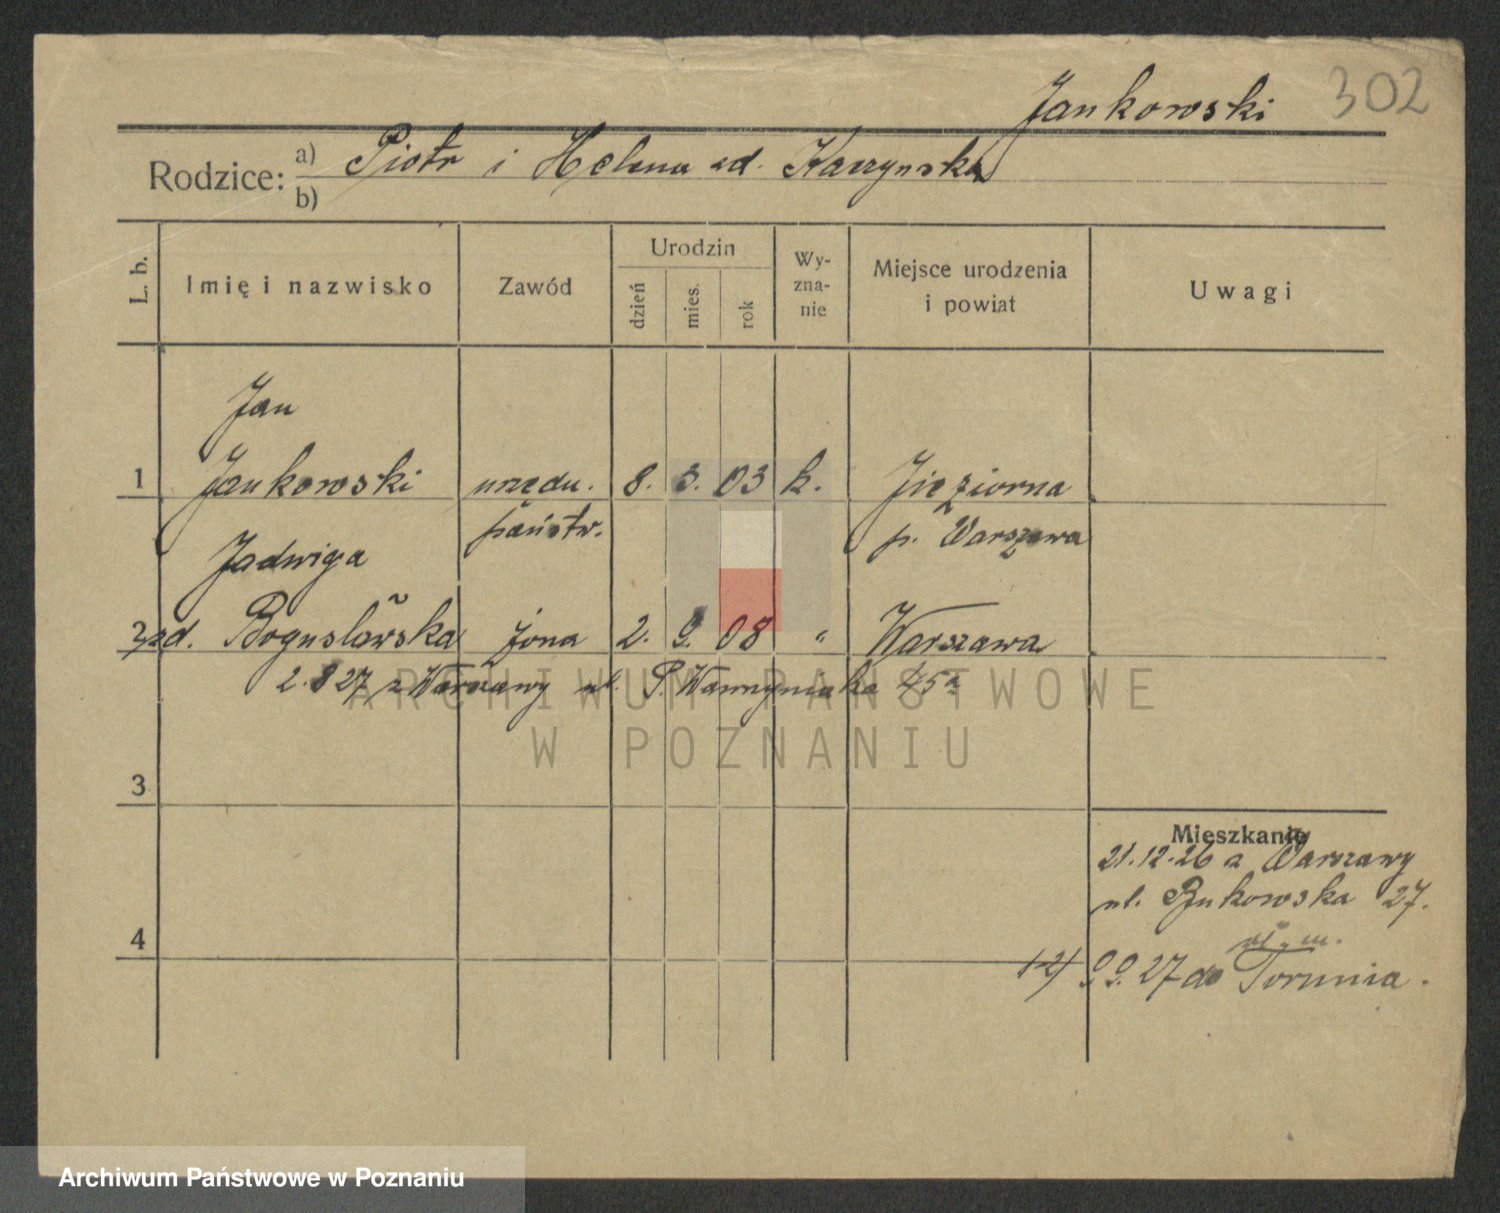 Jankowski 302
Rodzice: a) Piotr i Helena zd. Karzyńska
b)
L. b.
Imię i nazwisko
Zawód
Urodzin
dzień
mies.
rok
Wy-
zna-
nie
Miejsce urodzenia
i powiat
Uwagi
Jan
1 Jankowski urzędn. 8. 3. 03 k. Jieziorna
państw. p. Warszawa
Jadwiga
2 zd. Bogusławska żona 2. 9. 08 " Warszawa
2. 8 27 z Warszawy ul. P. Wawrzyniaka 45a
ARCHIWUM PAŃSTWOWE
W POZNANIU
3
Mieszkanie
21.12.26 z Warszawy
ul. Bukowska 27.
4
1-2) 9.9.27 do Torunia.
Archiwum Państwowe w Poznaniu